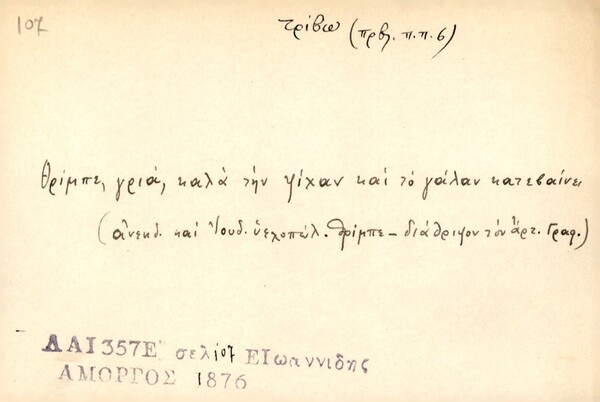 107
τρίβω (πρβλ. π.π. 6)
Θρίμπε, γριά, καλὰ τὴν ψίχαν καὶ τὸ γάλαν κατεβαίνει
(ἀνεκδ. καὶ . θρίμπε – διάθριψον τὸν ἄρτ. Γραφ.)
ΔΑΙ357Ε σελ107 ΕΙωαννιδης
ΑΜΟΡΓΟΣ 1876